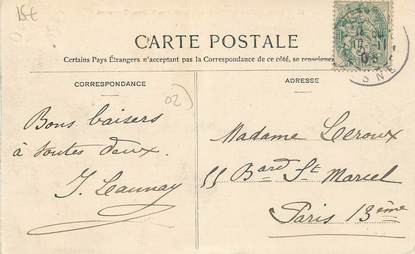 15€
CARTE POSTALE
Certains Pays Étrangers n'acceptant pas la Correspondance de ce côté, se renseigner
CORRESPONDANCE
ADRESSE
02
Bons baisers
à toutes deux.
J. Launay
Madame Leroux
55 Bard St Marcel
Paris 13ème